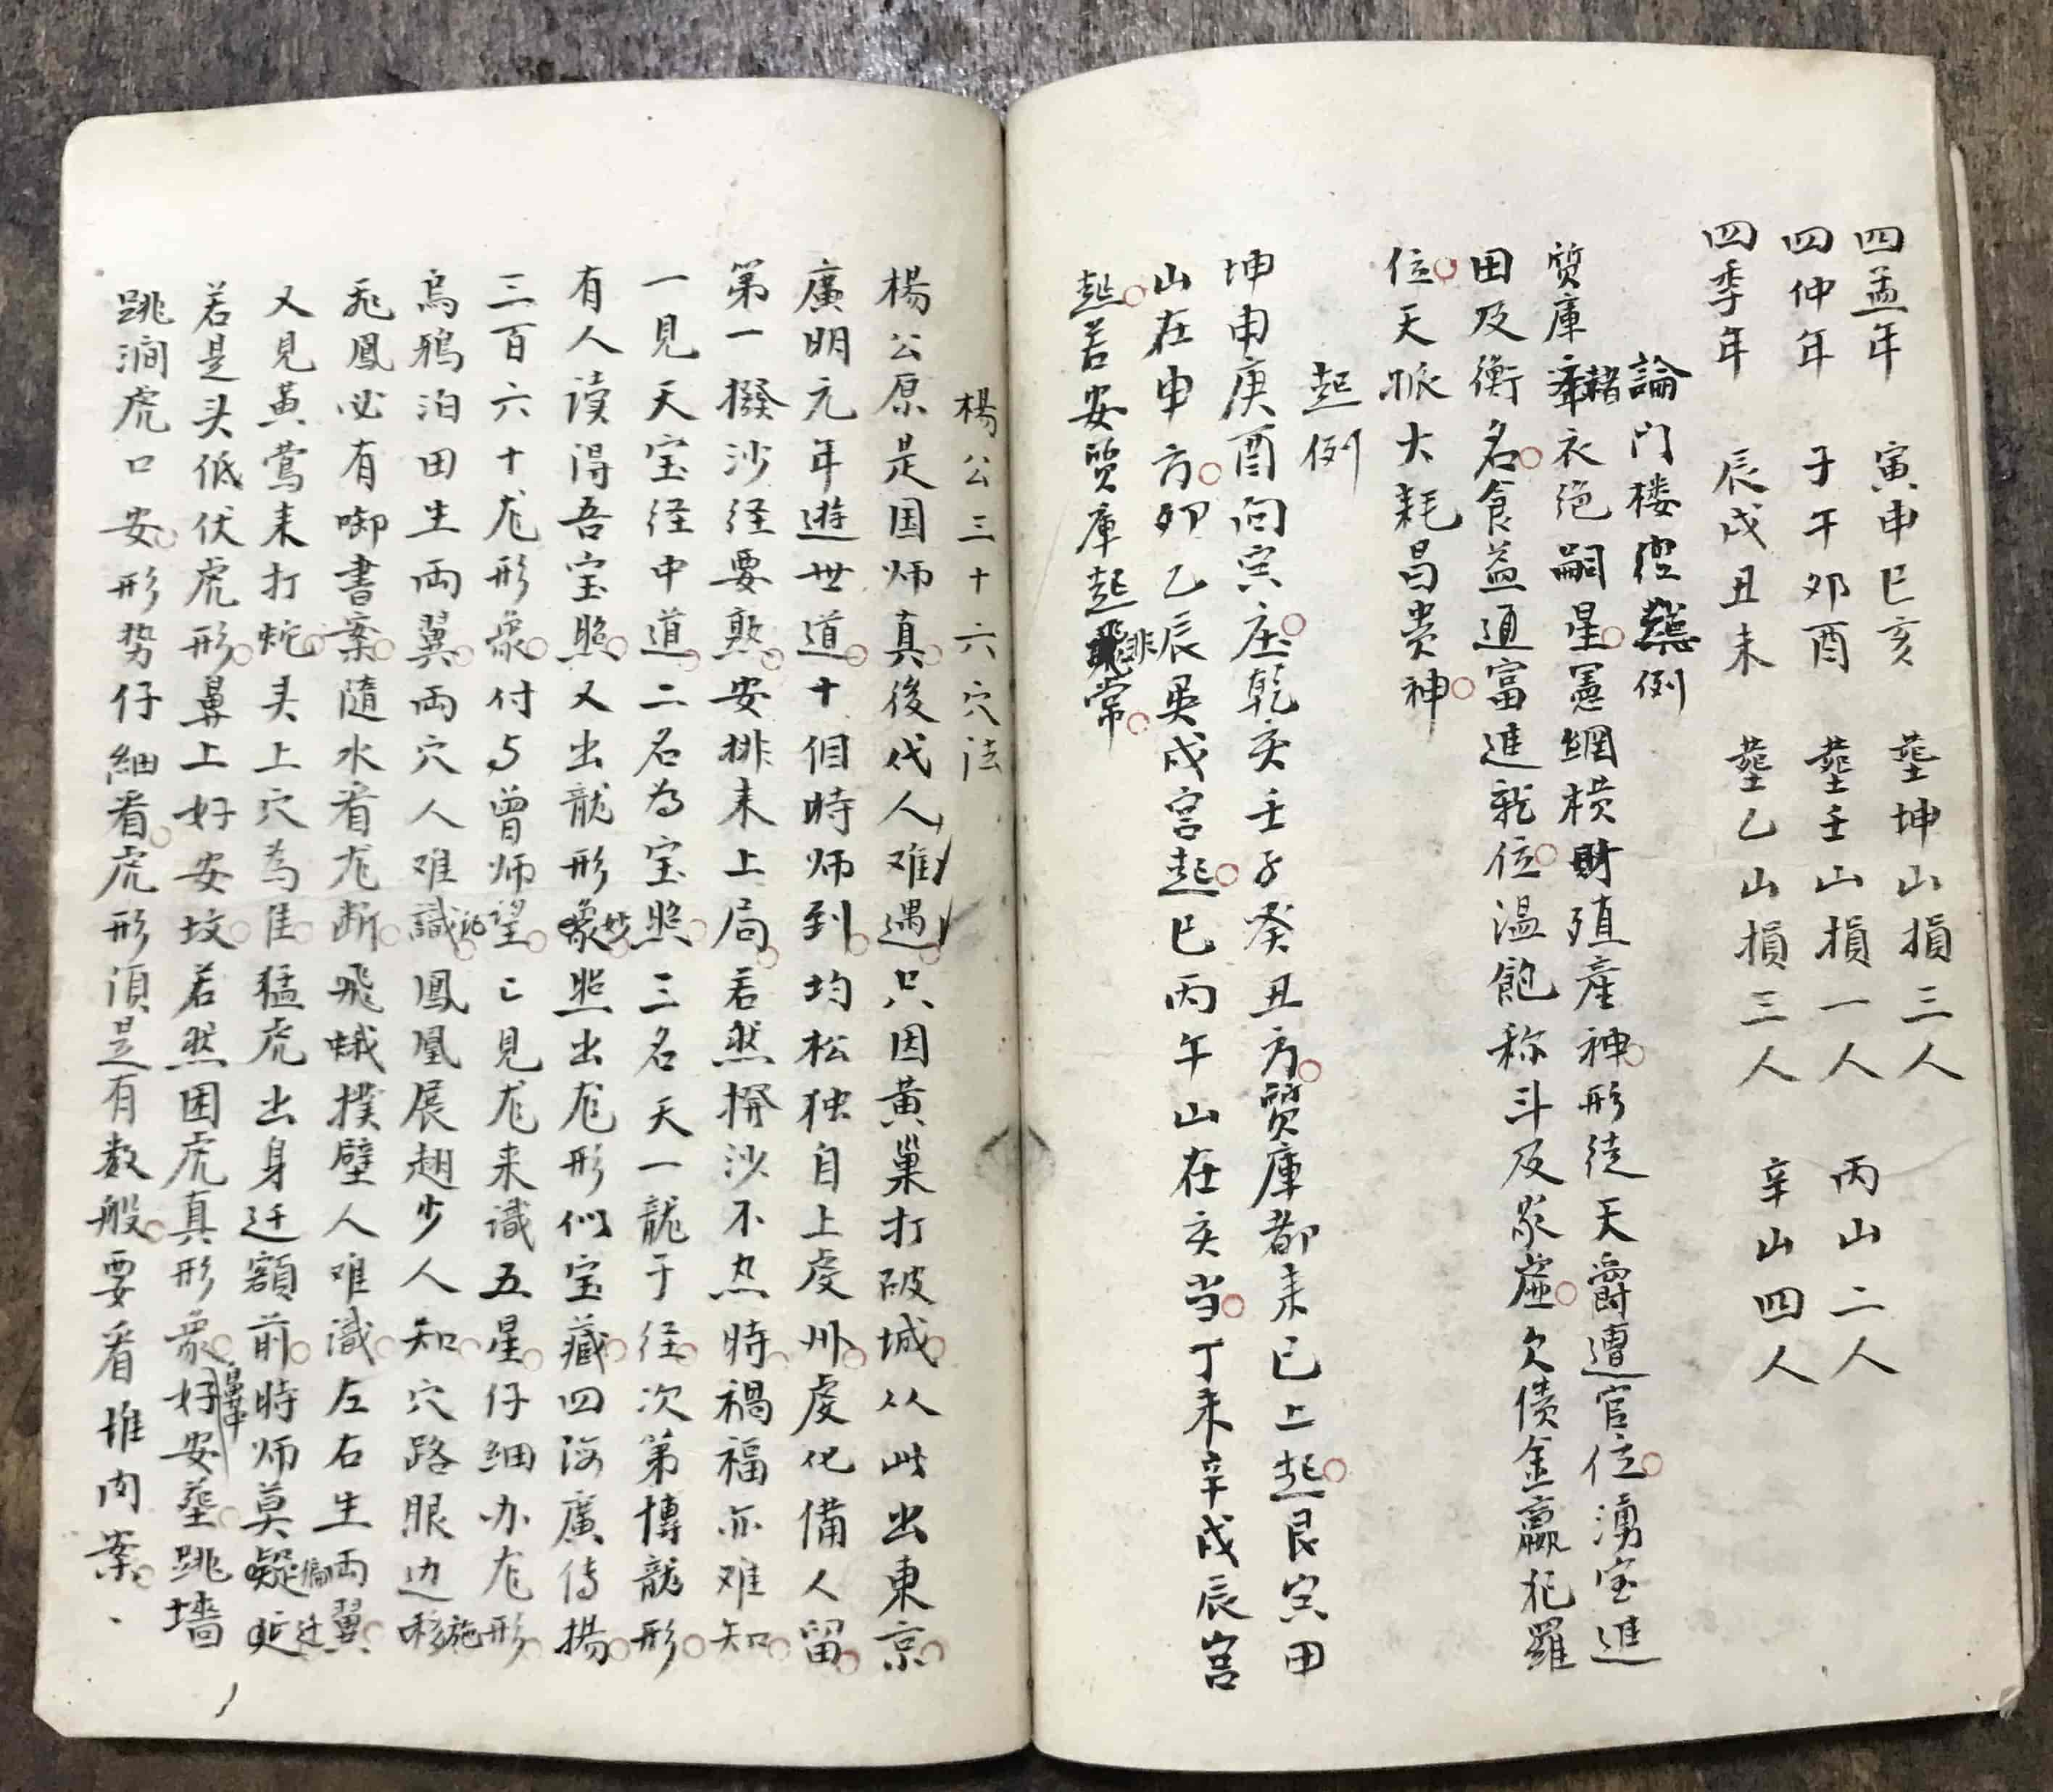 四孟年 寅申巳亥 塟坤山損三人
四仲年 子午卯酉 塟壬山損一人 丙山二人
四季年 辰戌丑未 塟乙山損三人 辛山四人
論門楼 例
質庫 赭衣绝嗣星憲網横財殖産神形徒天爵遭官位湧宝進
田及衡名食益通富進 位温飽称斗及家虚欠债金赢犯羅
位天 大耗昌贵神
起例
坤申庚酉向宾庄乾亥壬子癸丑方質庫都耒已上起艮寅甲
山在申方卯乙辰巽戌宫起巳丙午山在亥当丁未辛戌辰宫
起若安質庫起非常
楊公三十六穴法
楊公原是国师真後代人难遇只因黃巢打破城从此出東京
廣明元年遊世道十個時师到均松独自上虔州虔化備人留
第一撥沙经要熟安排耒上局若然撥沙不 時禍福亦难知
一見天宝径中道二名為宝照三名天一龍于径次第博龍形
有人读得吾宝照又出龍形妙照出尨形似宝藏四海廣传揚
三百六十尨形象付与曾师望亡見尨来識五星仔细办尨形
烏鴉泊田生両翼両穴人难識 鳳凰展翅少人知穴路眼边施
飛鳳必有啣書案隨水看尨断飛蛾撲壁人难識左右生両翼
又見黃鶯耒打蛇头上穴為佳猛虎出身迁额前時师莫偏迁
若是头低伏虎形鼻上好安坟若然困虎真形象鼻中好安塟跳墙
跳澗虎口安形势仔細看虎形湏是有数般要看堆肉案